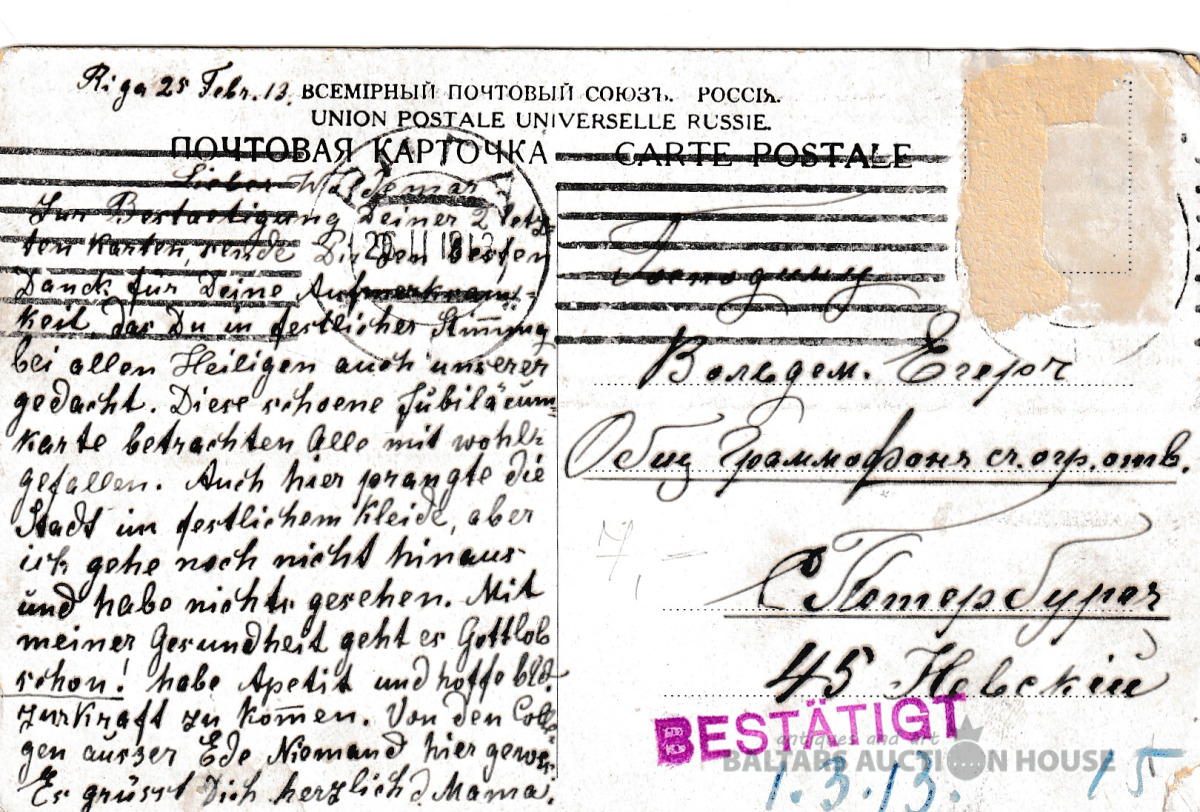 Riga 25 Febr. 13.
ВСЕМІРНЫЙ ПОЧТОВЫЙ СОЮЗЪ. РОССІЯ.
UNION POSTALE UNIVERSELLE RUSSIE.
ПОЧТОВАЯ КАРТОЧКА
CARTE POSTALE
Lieber Woldemar
Zur Bestaetigung Deiner 2 letz-
ten Karten, sende Dir den besten
Danck für Deine Aufmerksam-
keit das Du in festlicher Stim̅ung
bei allen Heiligen auch unserer
gedacht. Diese schoene Jubiläum-
karte betrachten Alle mit wohl-
gefallen. Auch hier prangte die
Stadt im festlichem Kleide, aber
ich gehe noch nicht hinaus
und habe nichts gesehen. Mit
meiner Gesundheit geht es Gottlob
schon! habe Apetit und hoffe bld.
zur Kraft zu kom̅en. Von den Colle-
gen äusser Ede Niemand hier gewes.
Es grüsst Dich herzlich d Mama.
26 II 1913
Господину
Вольдем. Егерч
Общ Граммофонъ сь.огр.отв.
С Петербургъ
45 Невскій
17, =
BESTÄTIGT
1.3.13. 15
antiques and art
BALTARS AUCTION HOUSE